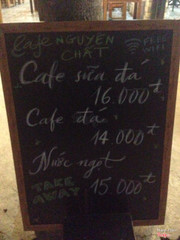 Cafe NGUYÊN CHẤT
FREE WIFI
Cafe sữa đá
16.000đ
Cafe đá
14.000đ
Nước ngọt
15.000đ
TAKE AWAY